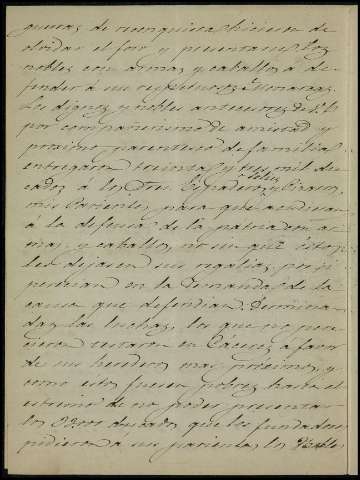 guerras de reconquista hicieron de
olvidar el foir y presentarse los
nobles con armas y caballos á de-
fender á sus respectivos Monarcas.
Los dignos y nobles antecesores de
por compañerismo de amistad y
proximo parentesco de familia
entregaron treinta y tres mil du-
cados á los Tres Felix Espaderos y Pizarro,
mis Parientes, para que acudieran
á la defensa de la patria con ar-
mas y caballos, no sin que estos
les dejasen sus regalias, por si
perecian en la demanda de la
causa que defendian. Termina-
das las luchas, los que no pere-
cieron testaron en Cáceres á favor
de sus herederos mas proximos, y
como estos fuesen pobres hasta el
estremo de no poder presentar
los 33.000 ducados que los fundadores
pidieron á sus parientes, los Nobles